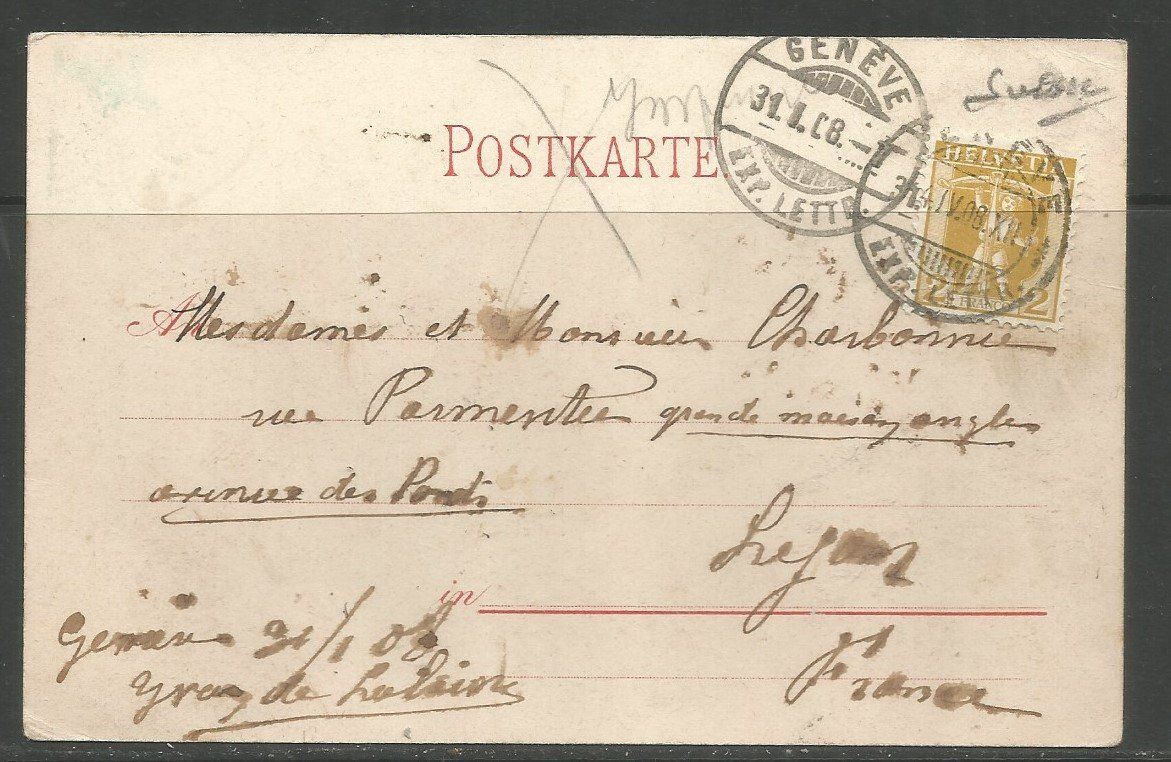 GENÈVE
31.I.08.
EXP. LETTR.
Suisse
POSTKARTE.
HELVETIA
EXP. LE
FRANCO 2
Mesdames et Monsieur Charbonnie
rue Parmentier grande maison angle
avenue des Ponts
Lyon
in
France
Genève 31/1 08
Yvan de